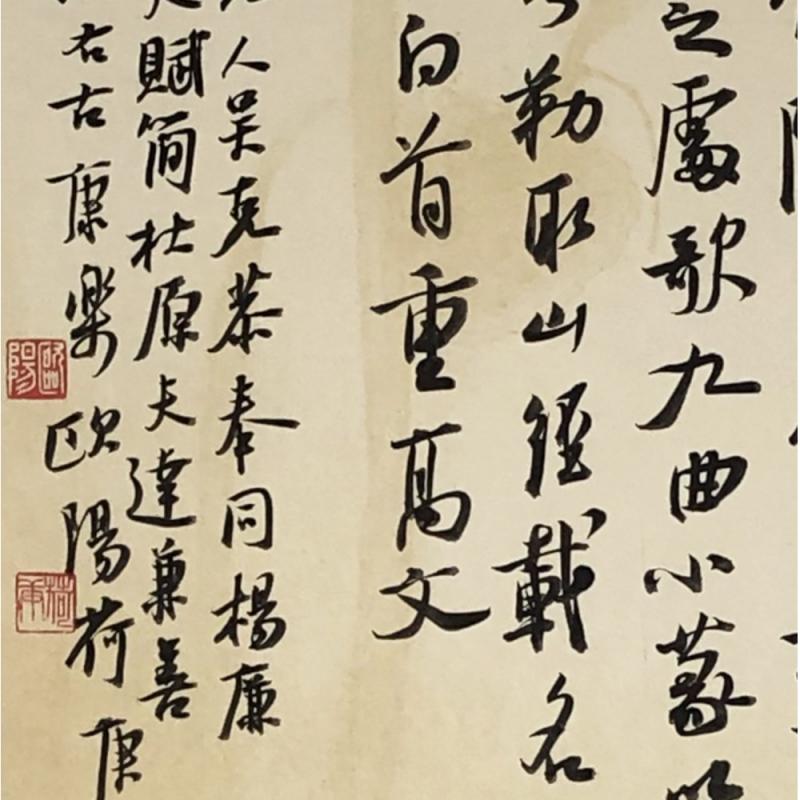 之處歌九曲小篆
勒取山徑載名
白首重高文
人吴克恭奉同楊廉
賦簡杜原夫達兼善
右古康樂歐陽荷康
歐陽